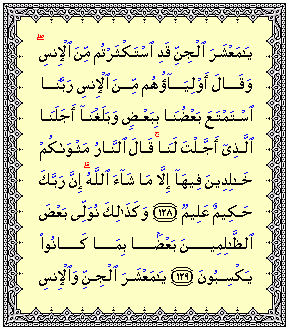 يَـٰمَعْشَرَ ٱلْجِنِّ قَدِ ٱسْتَكْثَرْتُم مِّنَ ٱلْإِنسِ ۖ
وَقَالَ أَوْلِيَآؤُهُم مِّنَ ٱلْإِنسِ رَبَّنَا
ٱسْتَمْتَعَ بَعْضُنَا بِبَعْضٍ وَبَلَغْنَآ أَجَلَنَا
ٱلَّذِىٓ أَجَّلْتَ لَنَا ۚ قَالَ ٱلنَّارُ مَثْوَىٰكُمْ
خَـٰلِدِينَ فِيهَآ إِلَّا مَا شَآءَ ٱللَّهُ ۗ إِنَّ رَبَّكَ
حَكِيمٌ عَلِيمٌ ﴿١٢٨﴾ وَكَذَٰلِكَ نُوَلِّى بَعْضَ
ٱلظَّـٰلِمِينَ بَعْضًۢا بِمَا كَانُوا۟
يَكْسِبُونَ ﴿١٢٩﴾ يَـٰمَعْشَرَ ٱلْجِنِّ وَٱلْإِنسِ